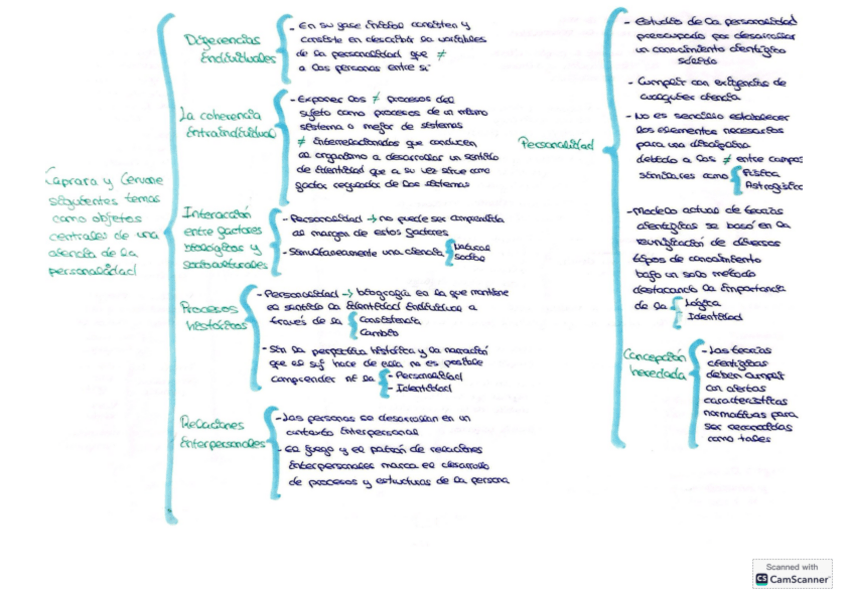 Caprara y Cervone
siguientes temas
como objetos
centrales de una
ciencia de la
personalidad
Diferencias
individuales
- En su fase inicial consisten y
consiste en describir la variables
de la personalidad que ≠
a las personas entre sí
La coherencia
intraindividual
- Exponer los ≠ procesos del
sujeto como procesos de un mismo
sistema o mejor de sistemas
≠ interrelacionados que conducen
al organismo a desarrollar un sentido
de identidad que a su vez sirve como
factor regulador de los sistemas
Interacción
entre factores
biológicos y
socioculturales
- Personalidad → no puede ser comprendida
al margen de estos factores
- Simultáneamente una ciencia
Natural
Social
Procesos
históricos
- Personalidad → biografía en la que mantiene
el sentido la identidad individual a
través de la
Consistencia
Cambio
- Sin la perspectiva histórica y la narración
que el suj hace de ella no es posible
comprender ni la
- Personalidad
- Identidad
Relaciones
interpersonales
- Las personas se desarrollan en un
contexto interpersonal
- El juego y el patrón de relaciones
interpersonales marca el desarrollo
de procesos y estructuras de la persona
Personalidad
- Estudio de la personalidad
preocupado por desarrollar
un conocimiento científico
sólido
- Cumplir con exigencias de
cualquier ciencia
- No es sencillo establecer
los elementos necesarios
para una disciplina
debido a las ≠ entre campos
similares como
Física
Astrofísica
- Modelo actual de teorías
científicas se basó en la
reunificación de diversos
tipos de conocimiento
bajo un solo método
destacando la importancia
de la
Lógica
Identidad
Concepción
heredada
- Las teorías
científicas
deben cumplir
con ciertas
características
normativas para
ser reconocidas
como tales
Scanned with
CS CamScanner